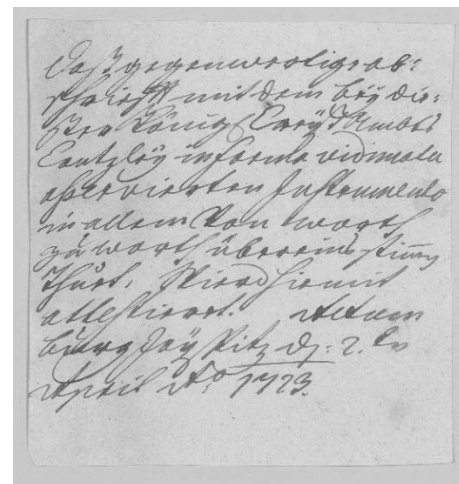 Daß gegenwertige ab-
schrifft mit dem beÿ die-
ser Königl Creÿß Ambts
Cantzleÿ in forma vidimata
asservierten Instrumento
in allem Von worth
zu worth übereins stimmen
Thuet, Wierd hiemit
attestieret. Actum
den 2.ten
April Ao 1723.